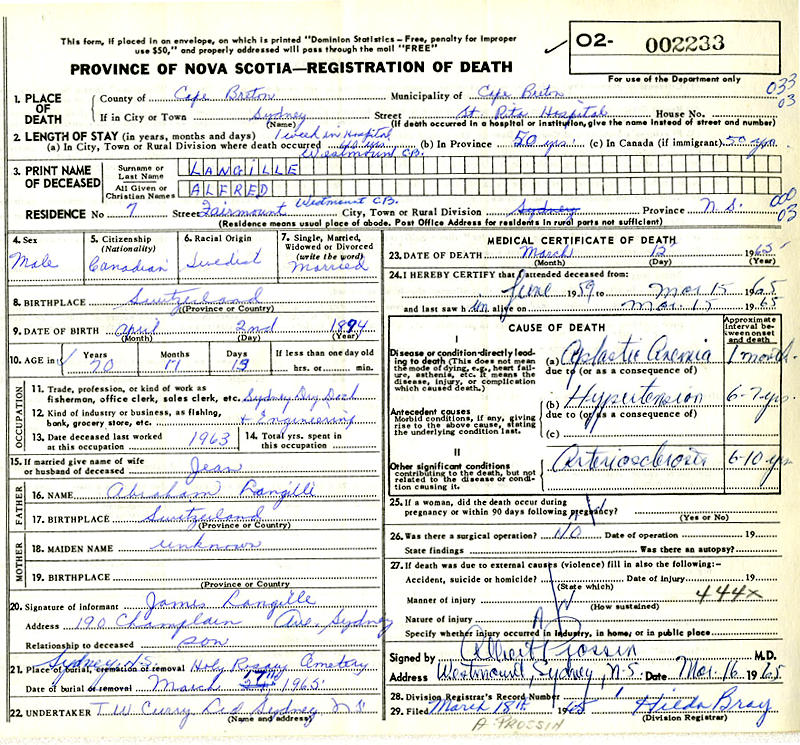 This form, if placed in an envelope, on which is printed "Dominion Statistics - Free, penalty for improper
use $50," and properly addressed will pass through the mail "FREE"
O2- 002233
For use of the Department only
PROVINCE OF NOVA SCOTIA—REGISTRATION OF DEATH
033
03
1. PLACE OF DEATH
County of Cape Breton Municipality of Cape Breton
If in City or Town Sydney (Name) Street St Rita Hospital House No.
(If death occurred in a hospital or institution, give the name instead of street and number)
2. LENGTH OF STAY (in years, months and days) 1 week in Hospital
(a) In City, Town or Rural Division where death occurred 40 yrs Westmount C.B. (b) In Province 50 yrs (c) In Canada (if immigrant) 50 yrs
3. PRINT NAME OF DECEASED
Surname or Last Name LANGILLE
All Given or Christian Names ALFRED
000
03
RESIDENCE No 7 Street Fairmount Westmount C.B. City, Town or Rural Division Sydney Province N.S.
(Residence means usual place of abode. Post Office Address for residents in rural parts not sufficient)
4. Sex Male
5. Citizenship (Nationality) Canadian
6. Racial Origin
7. Single, Married, Widowed or Divorced (write the word) Married
8. BIRTHPLACE Switzerland
(Province or Country)
9. DATE OF BIRTH April 2nd 1894
(Month) (Day) (Year)
10. AGE in Years 70 Months 11 Days 13 If less than one day old hrs. or min.
OCCUPATION
11. Trade, profession, or kind of work as fisherman, office clerk, sales clerk, etc. Sydney Dry Dock
12. Kind of industry or business, as fishing, bank, grocery store, etc. + Engineering
13. Date deceased last worked at this occupation 1963 14. Total yrs. spent in this occupation
15. If married give name of wife or husband of deceased Jean
FATHER
16. NAME Abraham Langille
17. BIRTHPLACE Switzerland
(Province or Country)
MOTHER
18. MAIDEN NAME unknown
19. BIRTHPLACE
(Province or Country)
20. Signature of informant James Langille
Address 190 Champlain Ave, Sydney
Relationship to deceased son
21. Place of burial, cremation or removal Sydney, N.S. Holy Rosary Cemetery
Date of burial or removal March 1965
22. UNDERTAKER T W Curry Ltd Sydney N S
(Name and address)
MEDICAL CERTIFICATE OF DEATH
23. DATE OF DEATH March 1965
(Month) (Day) (Year)
24. I HEREBY CERTIFY that I attended deceased from:
June 1959 to Mar. 15 1965
and last saw him alive on Mar. 15 1965
CAUSE OF DEATH
Approximate interval between onset and death
I
Disease or condition directly leading to death (This does not mean the mode of dying, e.g., heart failure, asthenia, etc. It means the disease, injury, or complication which caused death.)
(a) Aplastic Anemia 1 month
due to (or as a consequence of)
(b) Hypertension 6-7 yrs
due to (or as a consequence of)
Antecedent causes
Morbid conditions, if any, giving rise to the above cause, stating the underlying condition last.
(c)
II
Other significant conditions contributing to the death, but not related to the disease or condition causing it.
Arteriosclerosis 6-10 yrs
25. If a woman, did the death occur during pregnancy or within 90 days following pregnancy?
(Yes or No)
26. Was there a surgical operation? NO Date of operation 19
State findings Was there an autopsy?
27. If death was due to external causes (violence) fill in also the following:-
Accident, suicide or homicide? Date of injury 19
(State which)
Manner of injury 444x
(How sustained)
Nature of injury
Specify whether injury occurred in industry, in home, or in public place
Signed by Albert Prossin M.D.
Address Westmount, Sydney, N.S. Date Mar. 16 1965
28. Division Registrar's Record Number
29. Filed March 18th 1965 Hilda Bray
(Division Registrar)
A PROSSIN